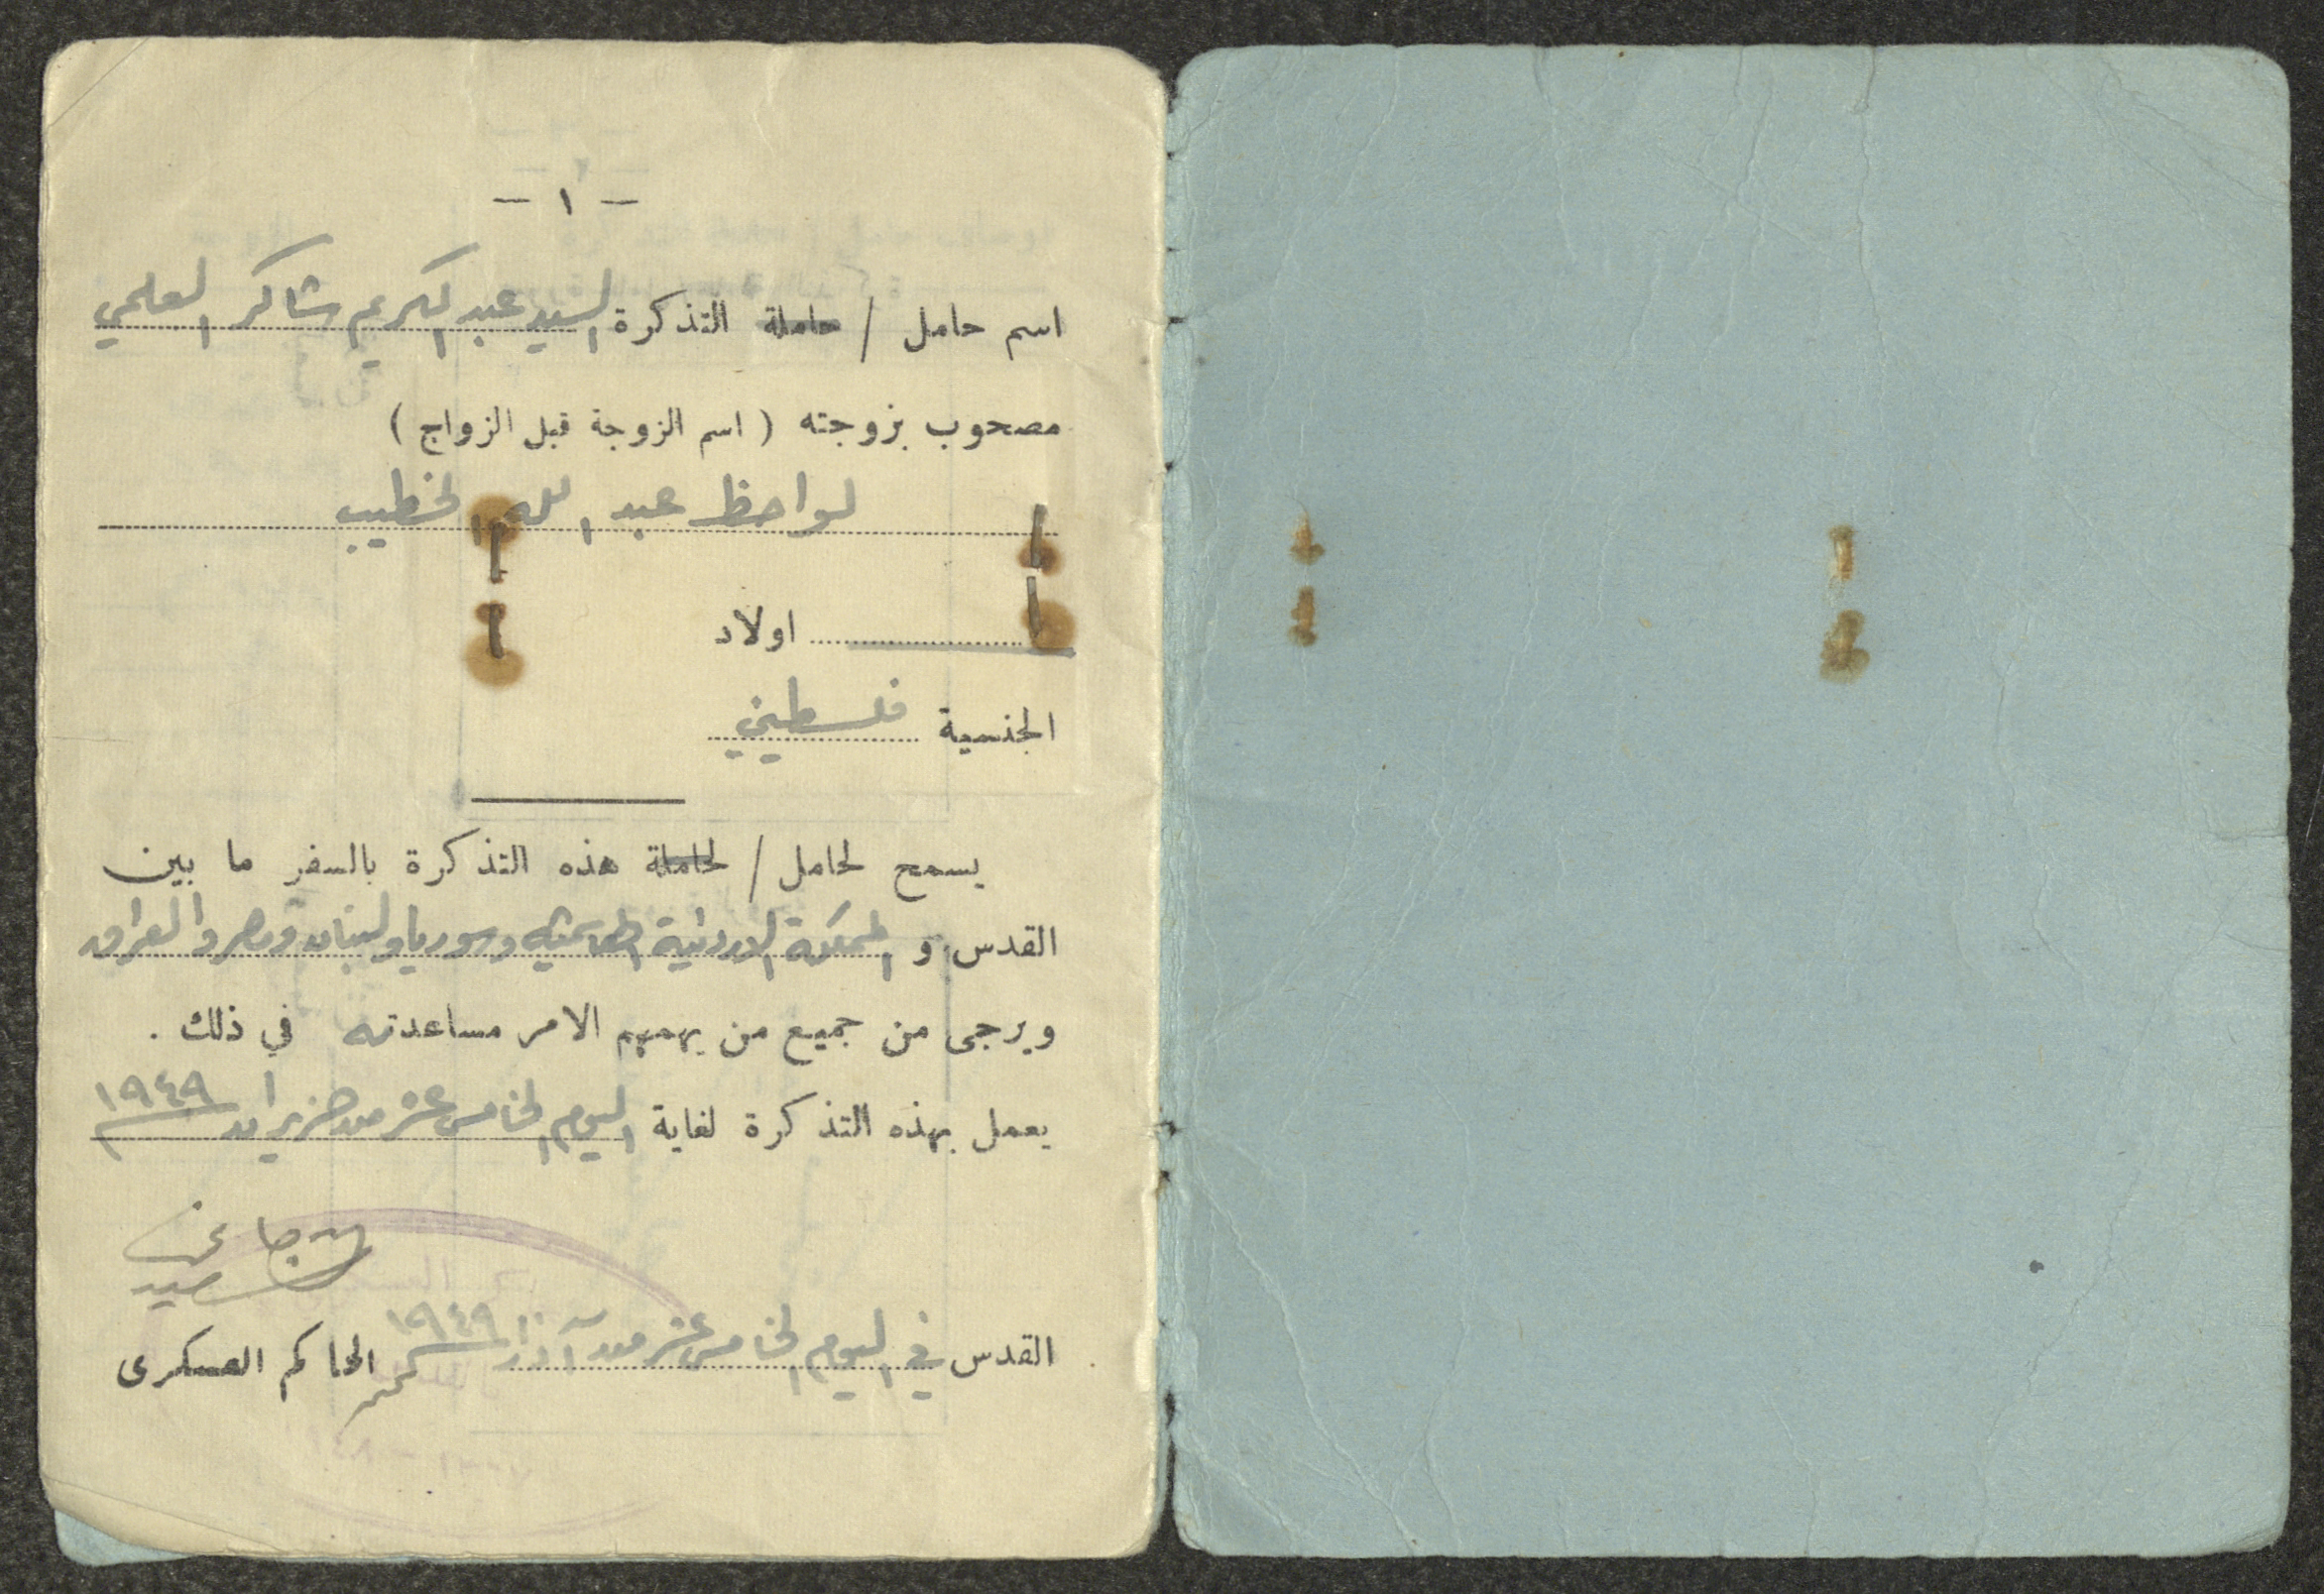 - ١ -
اسم حامل / حاملة التذكرة السيد عبد الكريم شاكر العلمي
مصحوب بزوجته ( اسم الزوجة قبل الزواج )
لواحظ عبد الله الخطيب
اولاد
الجنسية فلسطيني
يسمح لحامل / لحاملة هذه التذكرة بالسفر ما بين
القدس و المملكة الاردنية الهاشمية وسوريا ولبنان ومصر والعراق
ويرجى من جميع من يهمهم الامر مساعدته في ذلك .
يعمل بهذه التذكرة لغاية اليوم الخامس عشر من حزيران ١٩٤٩
القدس في اليوم الخامس عشر من آذار ١٩٤٩ الحاكم العسكرى